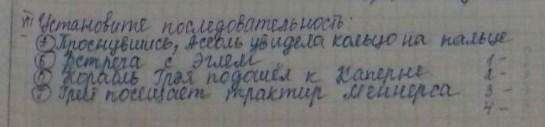 VII Установите последовательность:
А Проснувшись, Ассоль увидела кольцо на пальце
Б Встреча с Эглем 1-
В Корабль Грэя подошёл к Каперне 2-
Г Грэй посещает трактир Меннерса 3-
4-